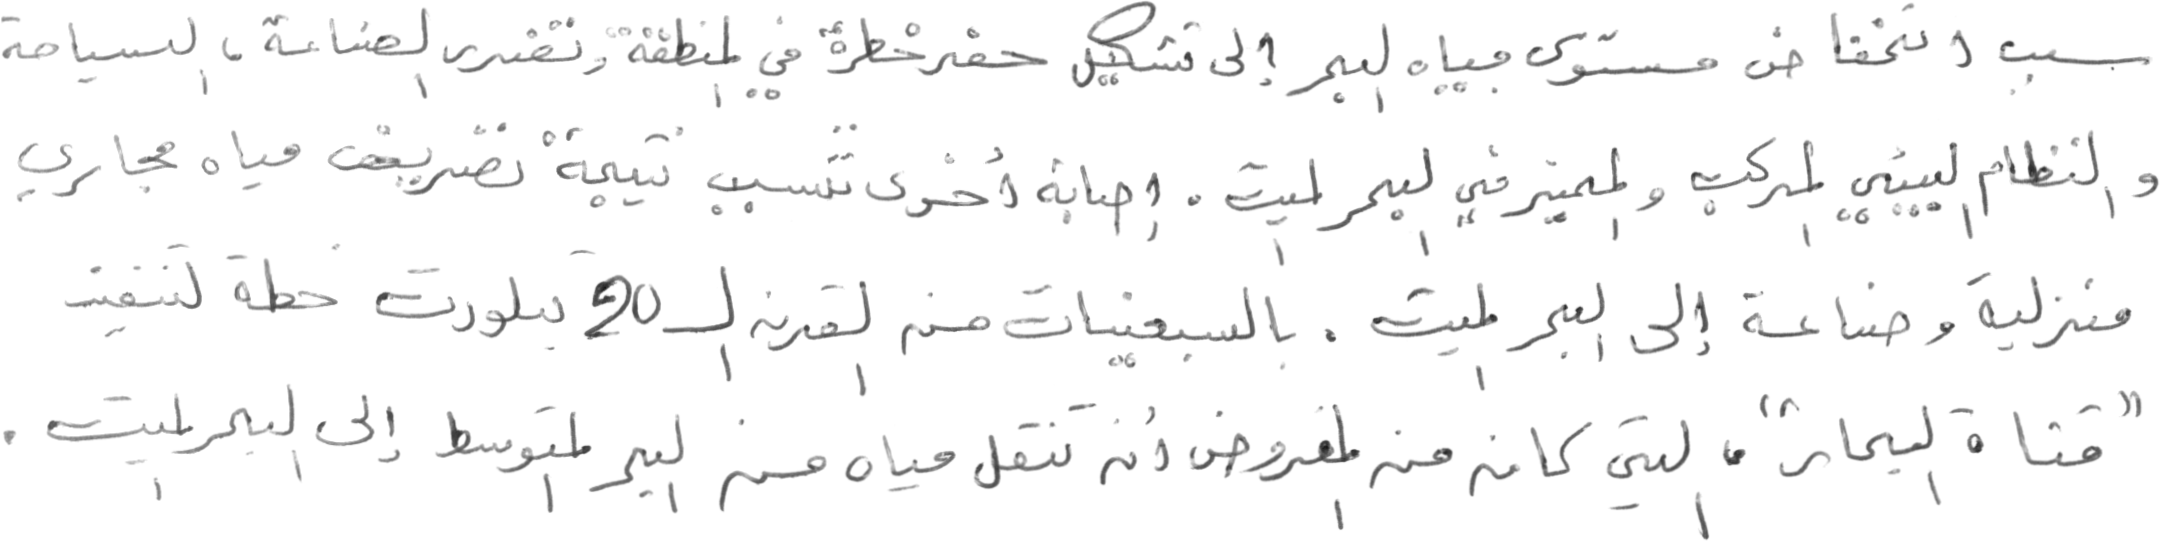 سبب انخفاض مستوى مياه البحر إلى تشكيل حفر خطرة في المنطقة وتضرر الصناعة، السياحة
والنظام البيئي المركب والمميز في البحر الميت. إصابة أخرى تتسبب نتيجة تصريف مياه مجاري
منزلية وصناعة إلى البحر الميت. بالسبعينيات من القرن الـ 20 تبلورت خطة لتنفيذ
"قناة البحار"، التي كان من المفروض أن تنقل مياه من البحر المتوسط إلى البحر الميت.